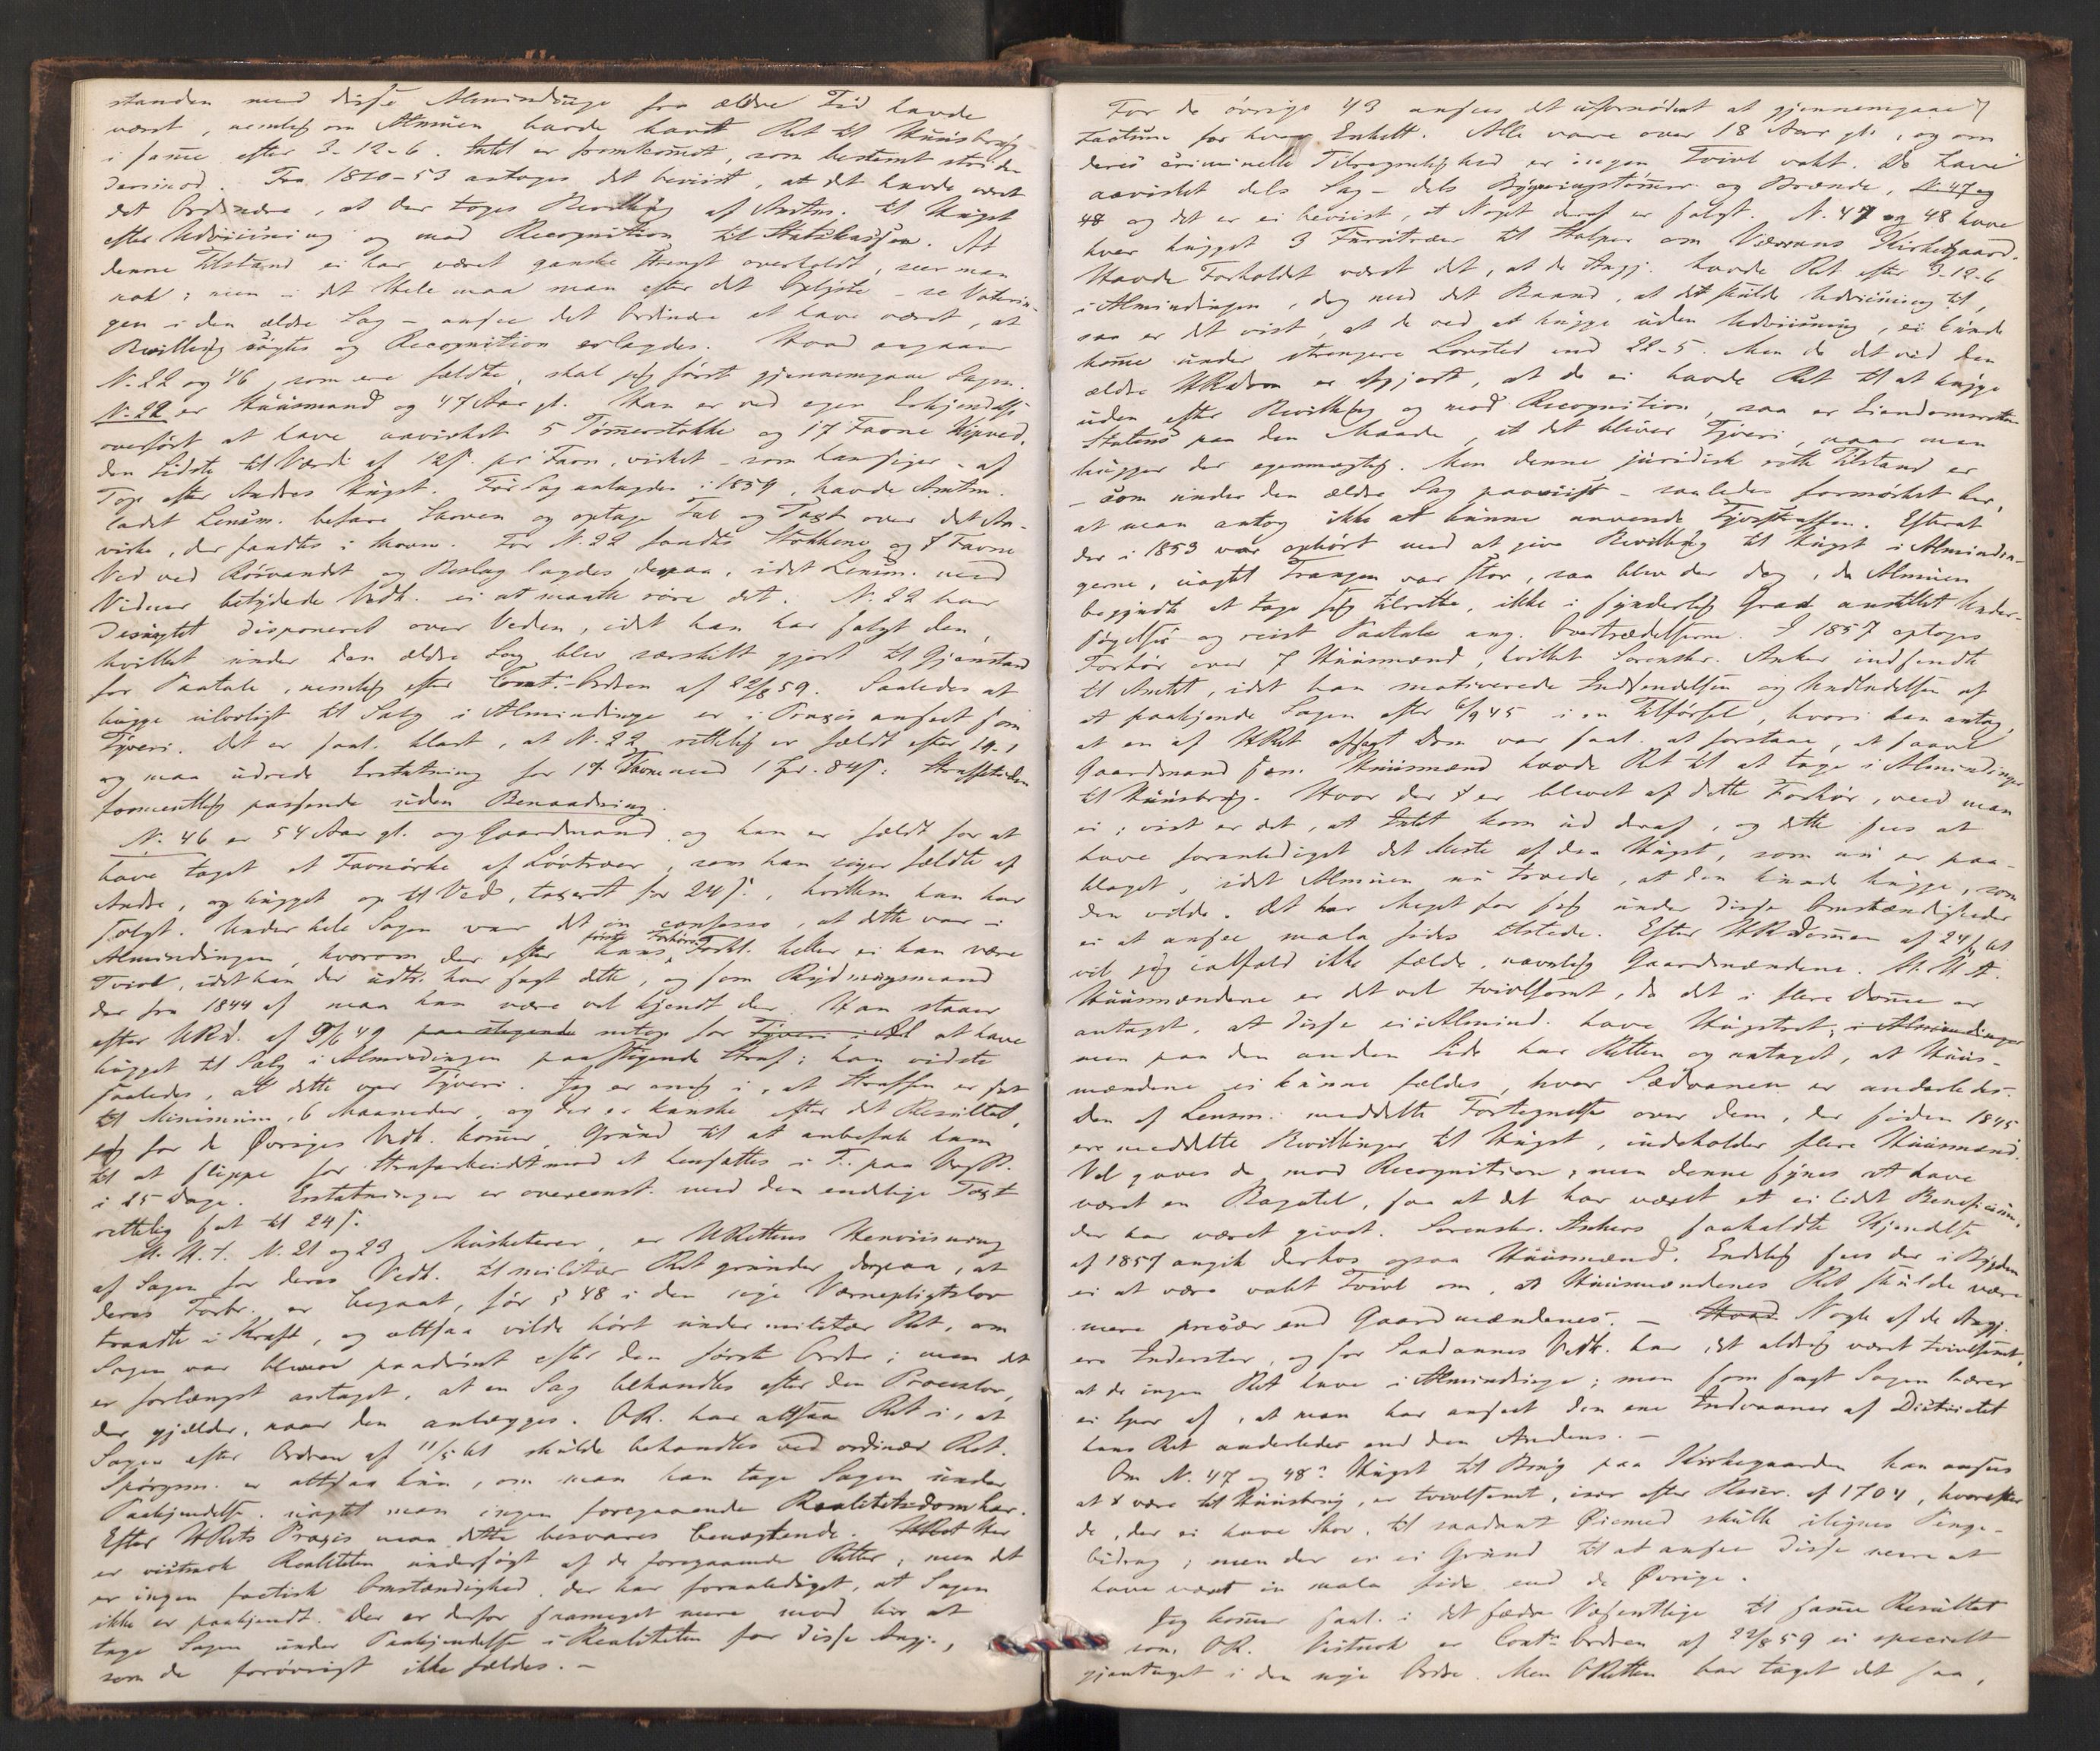 standen med disse Almindinge fra ældre Tid havde
været, nemlig om Almuen havde havdt Ret til Huusbrug
i samme efter 3-12-6. Intet er fremkommet, som bestemt strider
derimod. Fra 1810-53 antages det beviist, at det havde været
det Ordinære, at der toges Bevilling af Amtm. til Hugst
efter Udviisning og mod Recognition til Statskassen. At
denne Tilstand ei har været ganske strengt overholdt, seer man
nok; men i det Hele maa man efter det Oplyste - se Voterin-
gen i den ældre Sag - ansee det Ordinære at have været, at
Bevilling søgtes og Recognition erlagdes. Hvad angaaer
N. 22 og 46, som ere fældte, skal jeg først gjennemgaae Sagen.
N. 22 er Huusmand og 47 Aar gl. Han er ved egen Erkjendelse
overført at have avirket 5 Tømmerstokke og 17 Favne Kipved,
den sidste til Værdi af 12 s. pr Favn, virket - som han siger - af
Top efter Andres Hugst. Før Sag anlagdes i 1859, havde Amtm.
ladet Lensm. befare Skoven og optage Tal og Taxt over det An-
virke, der fandtes i Skoven. For N. 22 fandtes Stokkene og 8 Favne
Ved ved Rösvandet og Beslag lagdes derpaa, idet Lensm. med
Vidner betydede Vedk. ei at maatte røre det. N. 22 har
desuagtet disponeret over Veden, idet han har solgt den,
hvilket under den ældre Sag blev særskilt gjort til Gjenstand
for Paatale, nemlig efter Cont.-Ordren af 22/8 59. Saaledes at
hugge ulovligt til Salg i Almindinge er i Praxis anseet som
Tyveri. Det er saal. klart, at N. 22 rettelig er fældt efter 19-1
og maa udrede Erstatning for 17 Favne med 1 Spd. 84 s: Straffetiden
formentlig passende uden Benaadning.
N. 46 er 54 Aar gl. og Gaardmand, og han er fældt for at
have taget et Favnörke af Løvtræer, som han siger fældte af
Andre, og hugget op til Ved, taxeret for 24 s., hvilken han har
solgt. Under hele Sagen var det in confesso, at dette var i
Almindingen, hvorom der efter hans første Forhørs Forkl. heller ei kan være
Tvivl, idet han der udtr. har sagt dette, og som Rydningsmand
der fra 1844 af maa han være vel kjendt der. Han staaer
efter HRd. af 9/6 49 paa stegende netop for Tyveri i Al at have
hugget til Salg i Almindingen paastigende Straf; han vidste
saaledes, at dette var Tyveri. Jeg er enig i, at Straffen er sat
til Minimum, 6 Maaneder, og der er kanske efter det Resultat,
jeg for de Øvriges Vedk. kommer, Grund til at anbefale ham
til at slippe for Strafarbeidet mod at hensættes i F. paa V og B.
i 25 Dage. Erstatningen er overeenst. med den endelige Taxt
rettelig sat til 24 s.
M. H. t. N. 21 og 23, Musketerer, er HRettens Henviisning
af Sagen for deres Vedk. til militær Ret grundet derpaa, at
deres Forbr. er begaaet, før § 48 i den nye Værnepligtslov
traadte i Kraft, og altsaa vilde hørt under militær Ret, om
Sagen var bleven paadømt efter den første Ordre; men det
er forlængst antaget, at en Sag behandles efter den Proceslov,
der gjælder, naar den anlægges. OR. har altsaa Ret i, at
Sagen efter Ordren af 11/5 61 skulde behandles ved ordinær Ret.
Spørgsm. er altsaa kun, om man kan tage Sagen under
Paakjendelse, uagtet man ingen foregaaende Realitetsdom har.
Efter HRets Praxis maa dette besvares benægtende. HRet Her
er vistnok Realiteten undersøgt af de foregaaende Retter; men det
er ingen factisk Omstændighed, der har foranlediget, at Sagen
ikke er paakjendt. Der er derfor saameget mere mod her at
tage Sagen under Paakjendelse i Realiteten for disse Angj.,
som de forøvrigt ikke fældes. -
For de øvrige 43 ansees det ufornødent at gjennemgaae
Factum for hver Enkelt. Alle vare over 18 Aar gl., og om
deres criminelle Tilregnelighed er ingen Tvivl vakt. De have
avirket dels Sag- dels Bygningstømmer og Brænde, N. 47 og
48 og det er ei beviist, at Noget deraf er solgt. N. 47 og 48 have
hver hugget 3 Furutræer til Stolper om Værrans Kirkegaard.
Havde Forholdet været det, at de Angj. havde Ret efter 3-12-6
i Almindingen, dog med det Baand, at det skulde Udviisning til,
saa er det vist, at de ved at hugge uden Udviisning, ei kunde
komme under strengere Lovsted end 22-5. Men da det ved den
ældre HRsdom er afgjort, at de ei havde Ret til at hugge
uden efter Bevilling og mod Recognition, saa er Eiendomsretten
Statens paa den Maade, at det bliver Tyveri, naar man
hugger der egenmægtig. Men denne juridisk rette Tilstand er
- som under den ældre Sag paaviist - saaledes formørket her,
at man antog ikke at kunne anvende Tyvsstraffen. Efterat
der i 1853 var ophørt med at give Bevilling til Hugst i Alminden-
gerne, uagtet Trangen var stor, saa blev der dog, da Almuen
begyndte at tage sig tilrette, ikke i synderlig Grad anstillet Under-
søgelser og reist Paatale ang. Overtrædelserne. I 1857 optoges
Forhør over 7 Huusmænd, hvilket Sorenskr. Anker indsendte
til Amtet, idet han motiverede Indsendelsen og Undladelsen af
at paakjende Sagen efter 6/9 45 i en Tilførsel, hvori han antog,
at en af HRet afsagt Dom var saal. at forstaae, at saavel
Gaardmænd som Huusmænd havde Ret til at tage i Almindinger
til Huusbrug. Hvor der er blevet af dette Forhør, veed man
ei; vist er det, at Intet kom ud deraf, og dette sees at
have foranlediget det Meste af den Hugst, som nu er paa-
klaget, idet Almuen nu troede, at den kunde hugge, som
den vilde. Det har Meget for sig under disse Omstændigheder
ei at ansee mala fides tilstede. Efter HRdommen af 24/1 61
vil jeg ialfald ikke fælde, navnlig Gaardmændene. M. H. t.
Huusmændene er det vel tvivlsomt, da det i flere Domme er
antaget, at disse ei i Almind. have Hugstret; i Almindinger
men paa den anden Side har Retten og antaget, at Huus-
mændene ei kunne fældes, hvor Sædvanen er anderledes.
Den af Lensm. meddelte Fortegnelse over dem, der siden 1845
ere meddelte Bevillinger til Hugst, indeholder flere Huusmænd.
Vel gaves de mod Recognition; men denne synes at have
været en Bagatel, saa at det har været et ei lidet Beneficium,
der har været givet. Sorenskr. Ankers saakaldte Kjendelse
af 1857 angik derhos ogsaa Huusmænd. Endelig sees der i Bygden
ei at være vakt Tvivl om, at Huusmændenes Ret skulde være
mere precær end Gaardmændenes. - Hvad Nogle af de Angj.
ere Inderster, og for Saadannes Vedk. har det aldrig været tvivlsomt,
at de ingen Ret have i Almindinge; men som sagt Sagen bærer
ei Spor af, at man har anseet den ene Indvaaner af Districtet
hans Ret anderledes end den Andens. -
Om N. 47 og 48s Hugst til Brug paa Kirkegaarden kan ansees
at være til Huusbrug, er tvivlsomt, især efter Rescr. af 1704, hvorefter
de, der ei have Skov, til saadant Øiemed skulle ilignes Penge-
bidrag; men der er ei Grund til at ansee disse mere at
have været in mala fide end de Øvrige.
Jeg kommer saal. i det Væsentlige til samme Resultat
som OR. Vistnok er Cont.-Ordren af 22/8 59 ei specielt
gjentaget i den nye Ordre. Men ORetten har taget det saa,